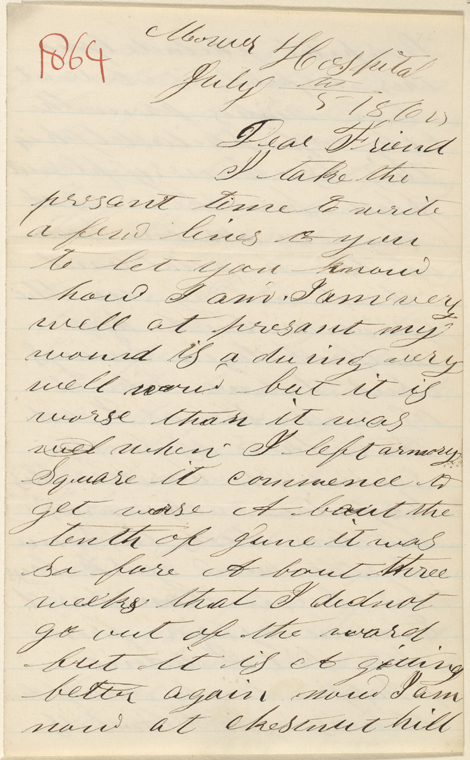 1864
Mower Hospital
July th
5 186
Dear Friend
I take the
presant time to write
a few lines to you
to let you know
how I am. I am very
well at presant my
wound is a duing very
well now but it is
worse than it was
when I left armory
Square it commence to
get worse A bout the
tenth of June it was
so fare A bout three
weeks that I did not
go out of the ward
but it is A giting
better again now I am
now at chestnut hill